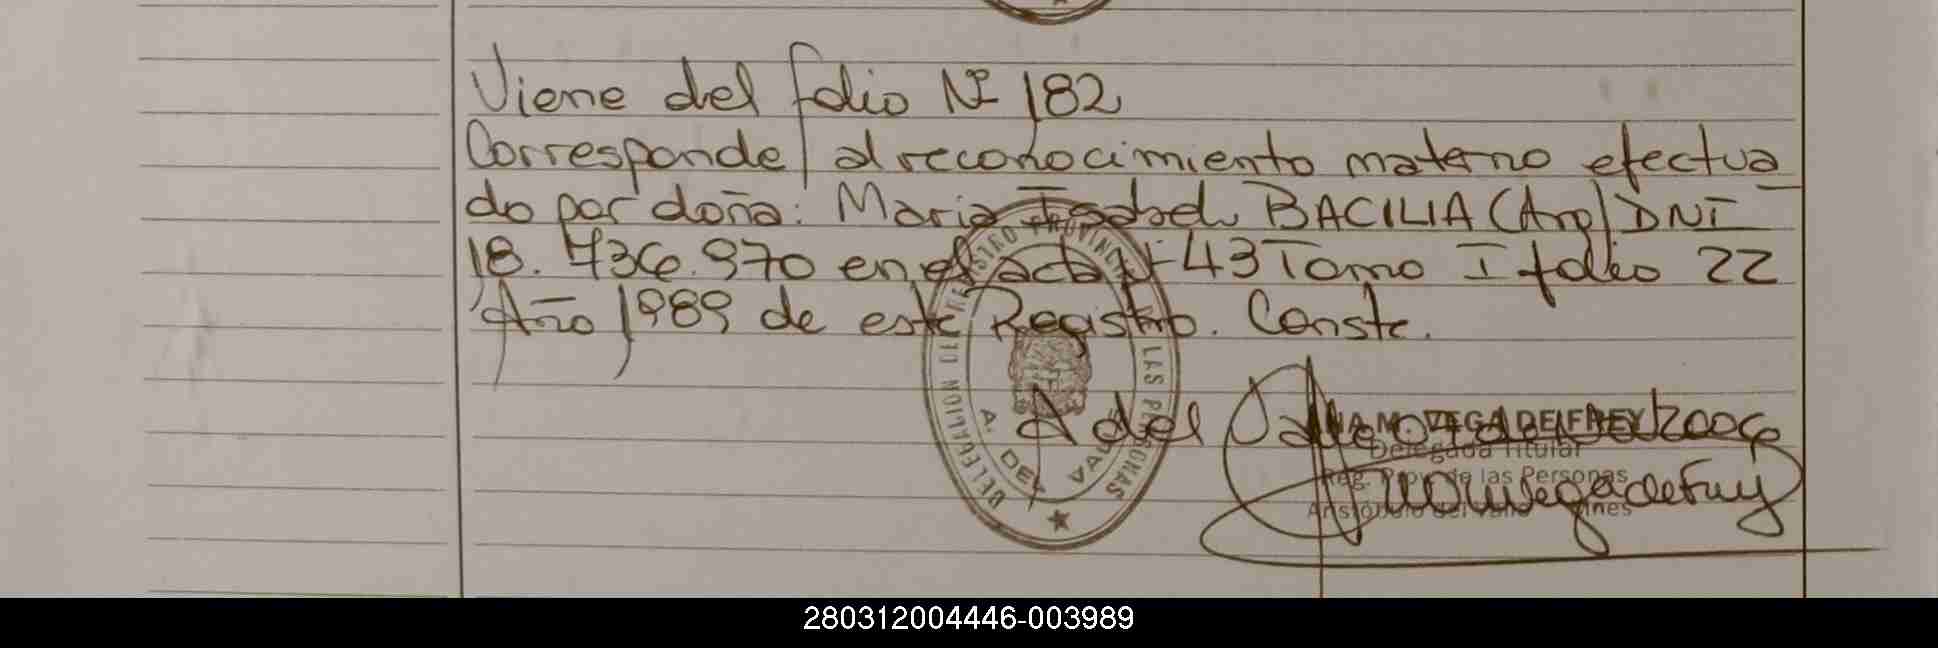 Viene del folio Nº 182
Corresponde al reconocimiento materno efectua
do por doña: Maria Isabel BACILIA (Arg) DNI
18.736.970 en el acta 143 Tomo I folio 22
Año 1989 de este Registro. Conste.
A del Valle 2006
DELEGACION DEL REGISTRO PROVINCIAL DE LAS PERSONAS
A. DEL VALLE
ANA M. VEGA DE FREY
Delegada Titular
Reg. Prov. de las Personas
Aristóbulo del Valle
280312004446-003989